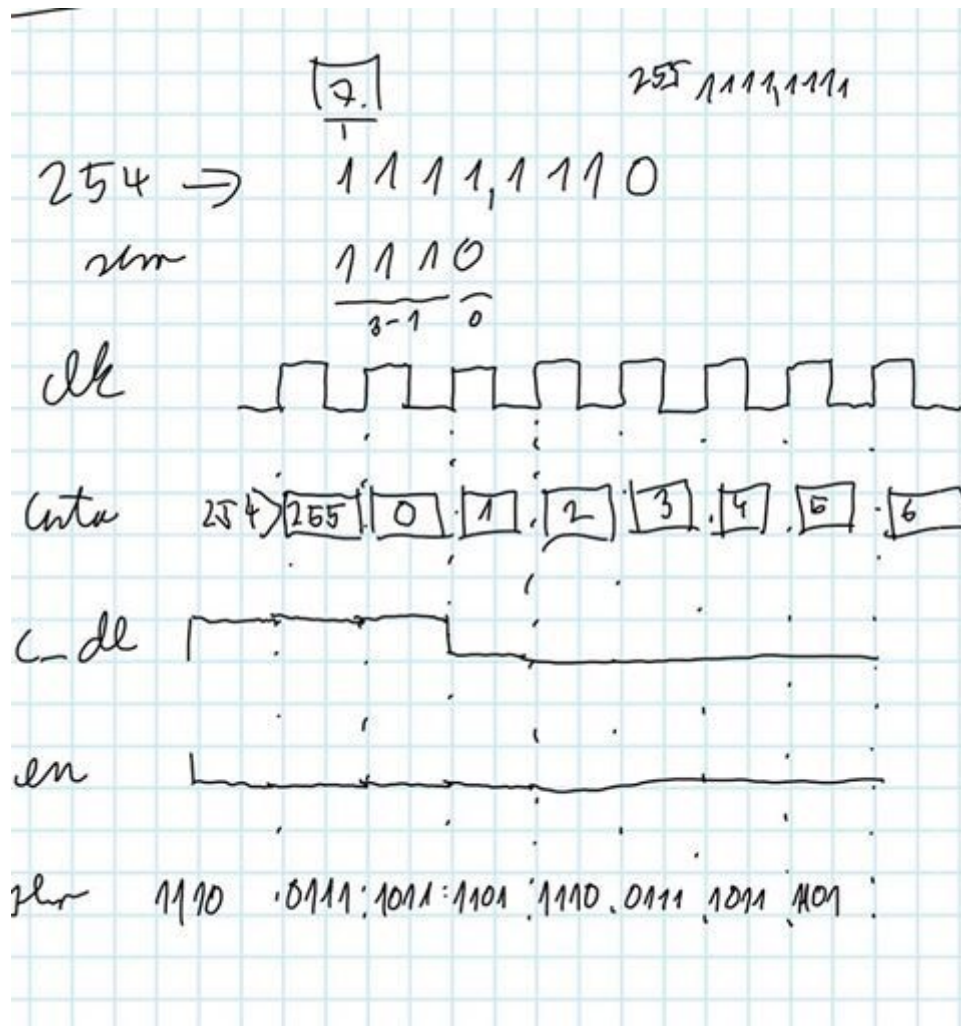 7.
255 1111,1111
254 → 1111,1110
1110
3-1 0
clk
254 255 0 1 2 3 4 5 6
c_dl
en
1110 0111 1011 1101 1110 0111 1011 1101